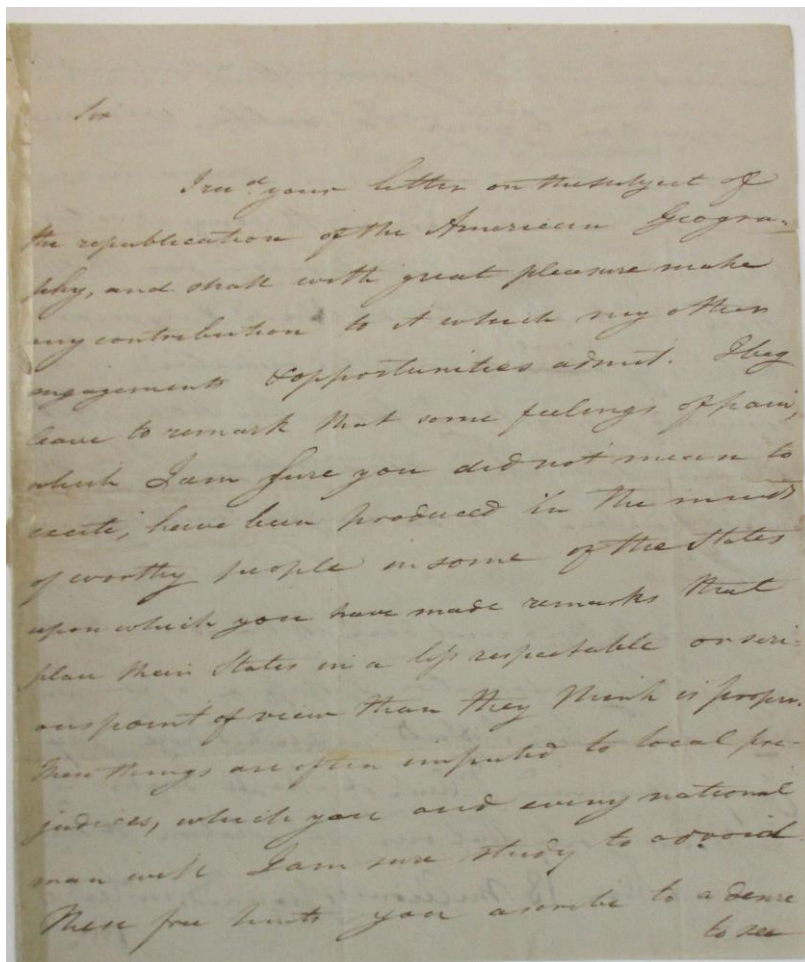 Sir
I recd. your letter on the subject of
the republication of the American Geogra-
phy, and shall with great pleasure make
any contribution to it which my other
engagements & opportunities admit. I beg
leave to remark that some feelings of pain,
which I am sure you did not mean to
excite, have been produced in the minds
of worthy people in some of the States
upon which you have made remarks that
place their States in a less respectable or seri-
ous point of view than they think is proper.
These things are often imputed to local pre-
judices, which you and every national
man will I am sure study to advoid.
These free hints you ascribe to a desire
to see